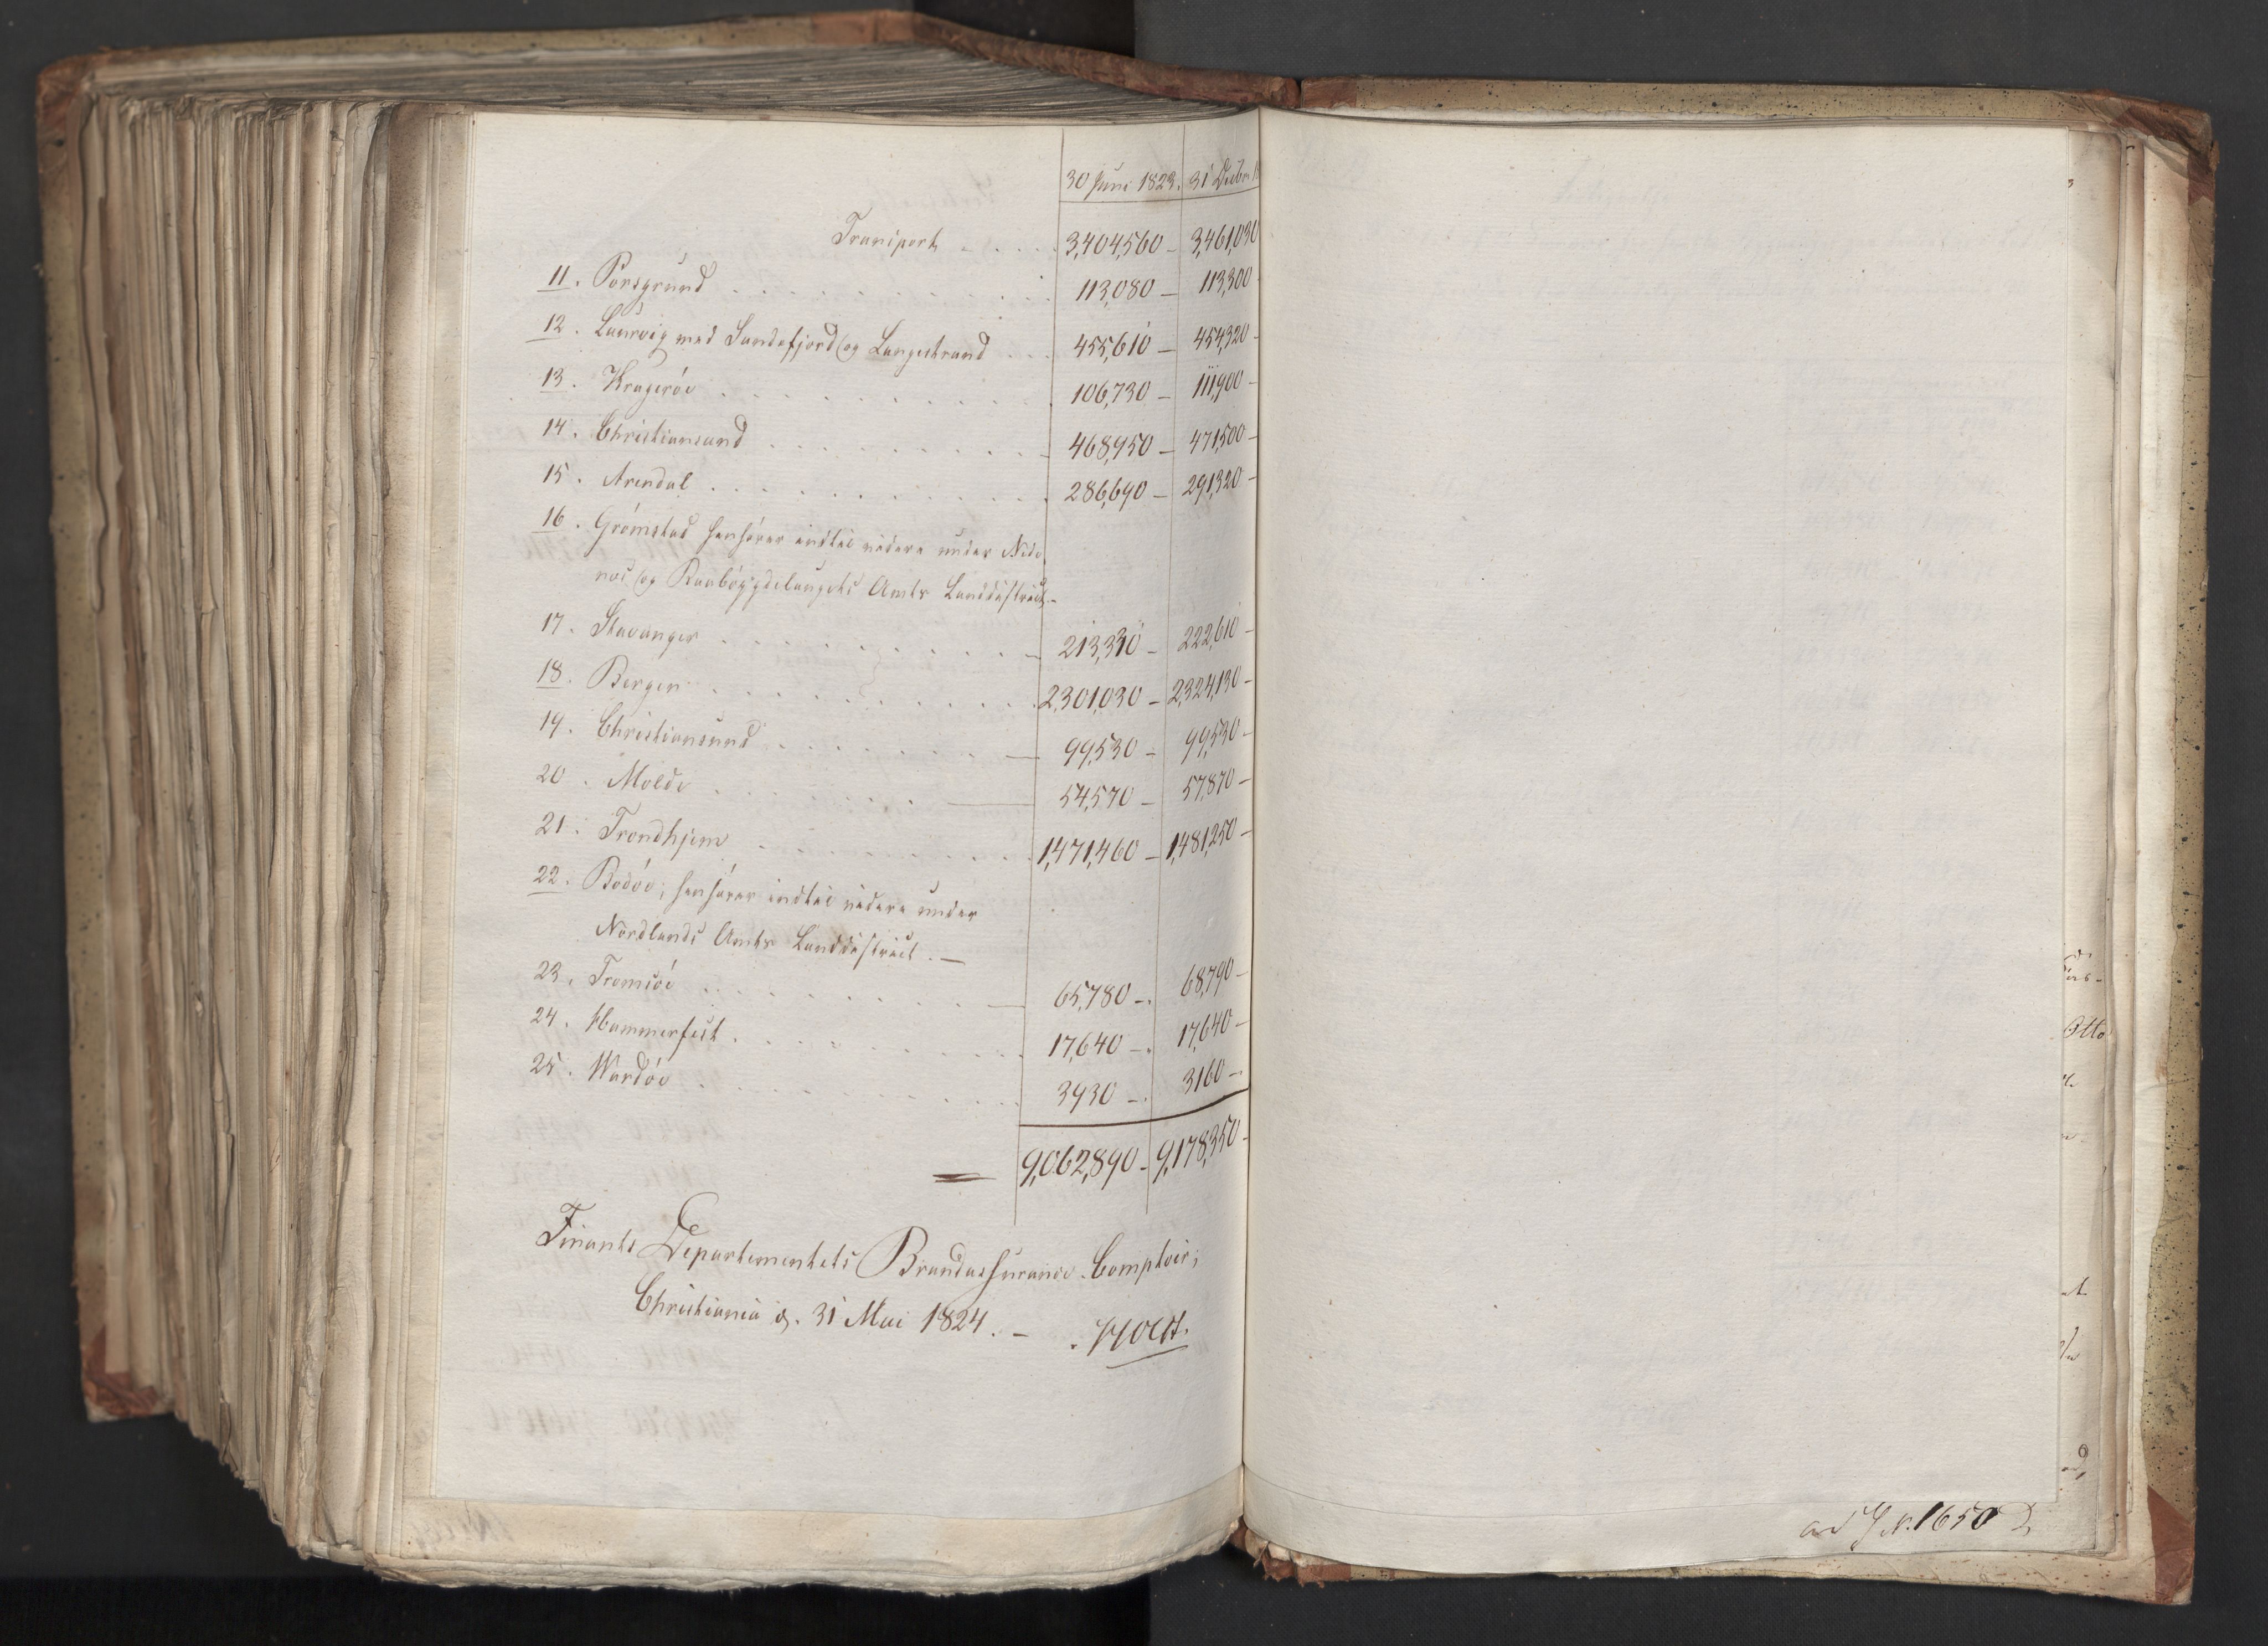 30 Juni 1823. 31 Decbr 18
Transport . . . . 3,404,560 – 3,461,030
11. Porsgrund . . . . 113,080 – 113,300
12. Laurvig med Sandefjord og Langestrand . . . 455,610 – 454,320 –
13. Kragerøe . . . . 106,730 – 111,900 –
14. Christiansand . . . . 468,950 – 471,500 –
15. Arendal . . . . 286,690 – 291,320 –
16. Grømstad henhører indtil videre under Nede
næs og Raabøygdelaugets Amts Landdistrict. –
17. Stavanger . . . . 213,330 – 222,610 –
18. Bergen . . . . 2,301,030 – 2,324,130 –
19. Christiansund . . . . 99,530 – 99,530 –
20. Molde . . . . 54,570 – 57,870 –
21. Trondhjem . . . . 1,471,460 – 1,481,250 –
22. Bodøe, henhører indtil videre under
Nordlands Amts Landdistrict. –
23. Tromsøe . . . . 65,780 –. 68,790 –
24. Hammerfest . . . . 17,640 –. 17,640 –
25. Wardøe . . . . 3930 –. 3160 –.
9,062,890 – 9,178,350 –
Finants Departementets Brandassurance-Comptoir;
Christiania d. 31 Mai 1824. –
Holst.
Otto
ad J. N. 1650 D.